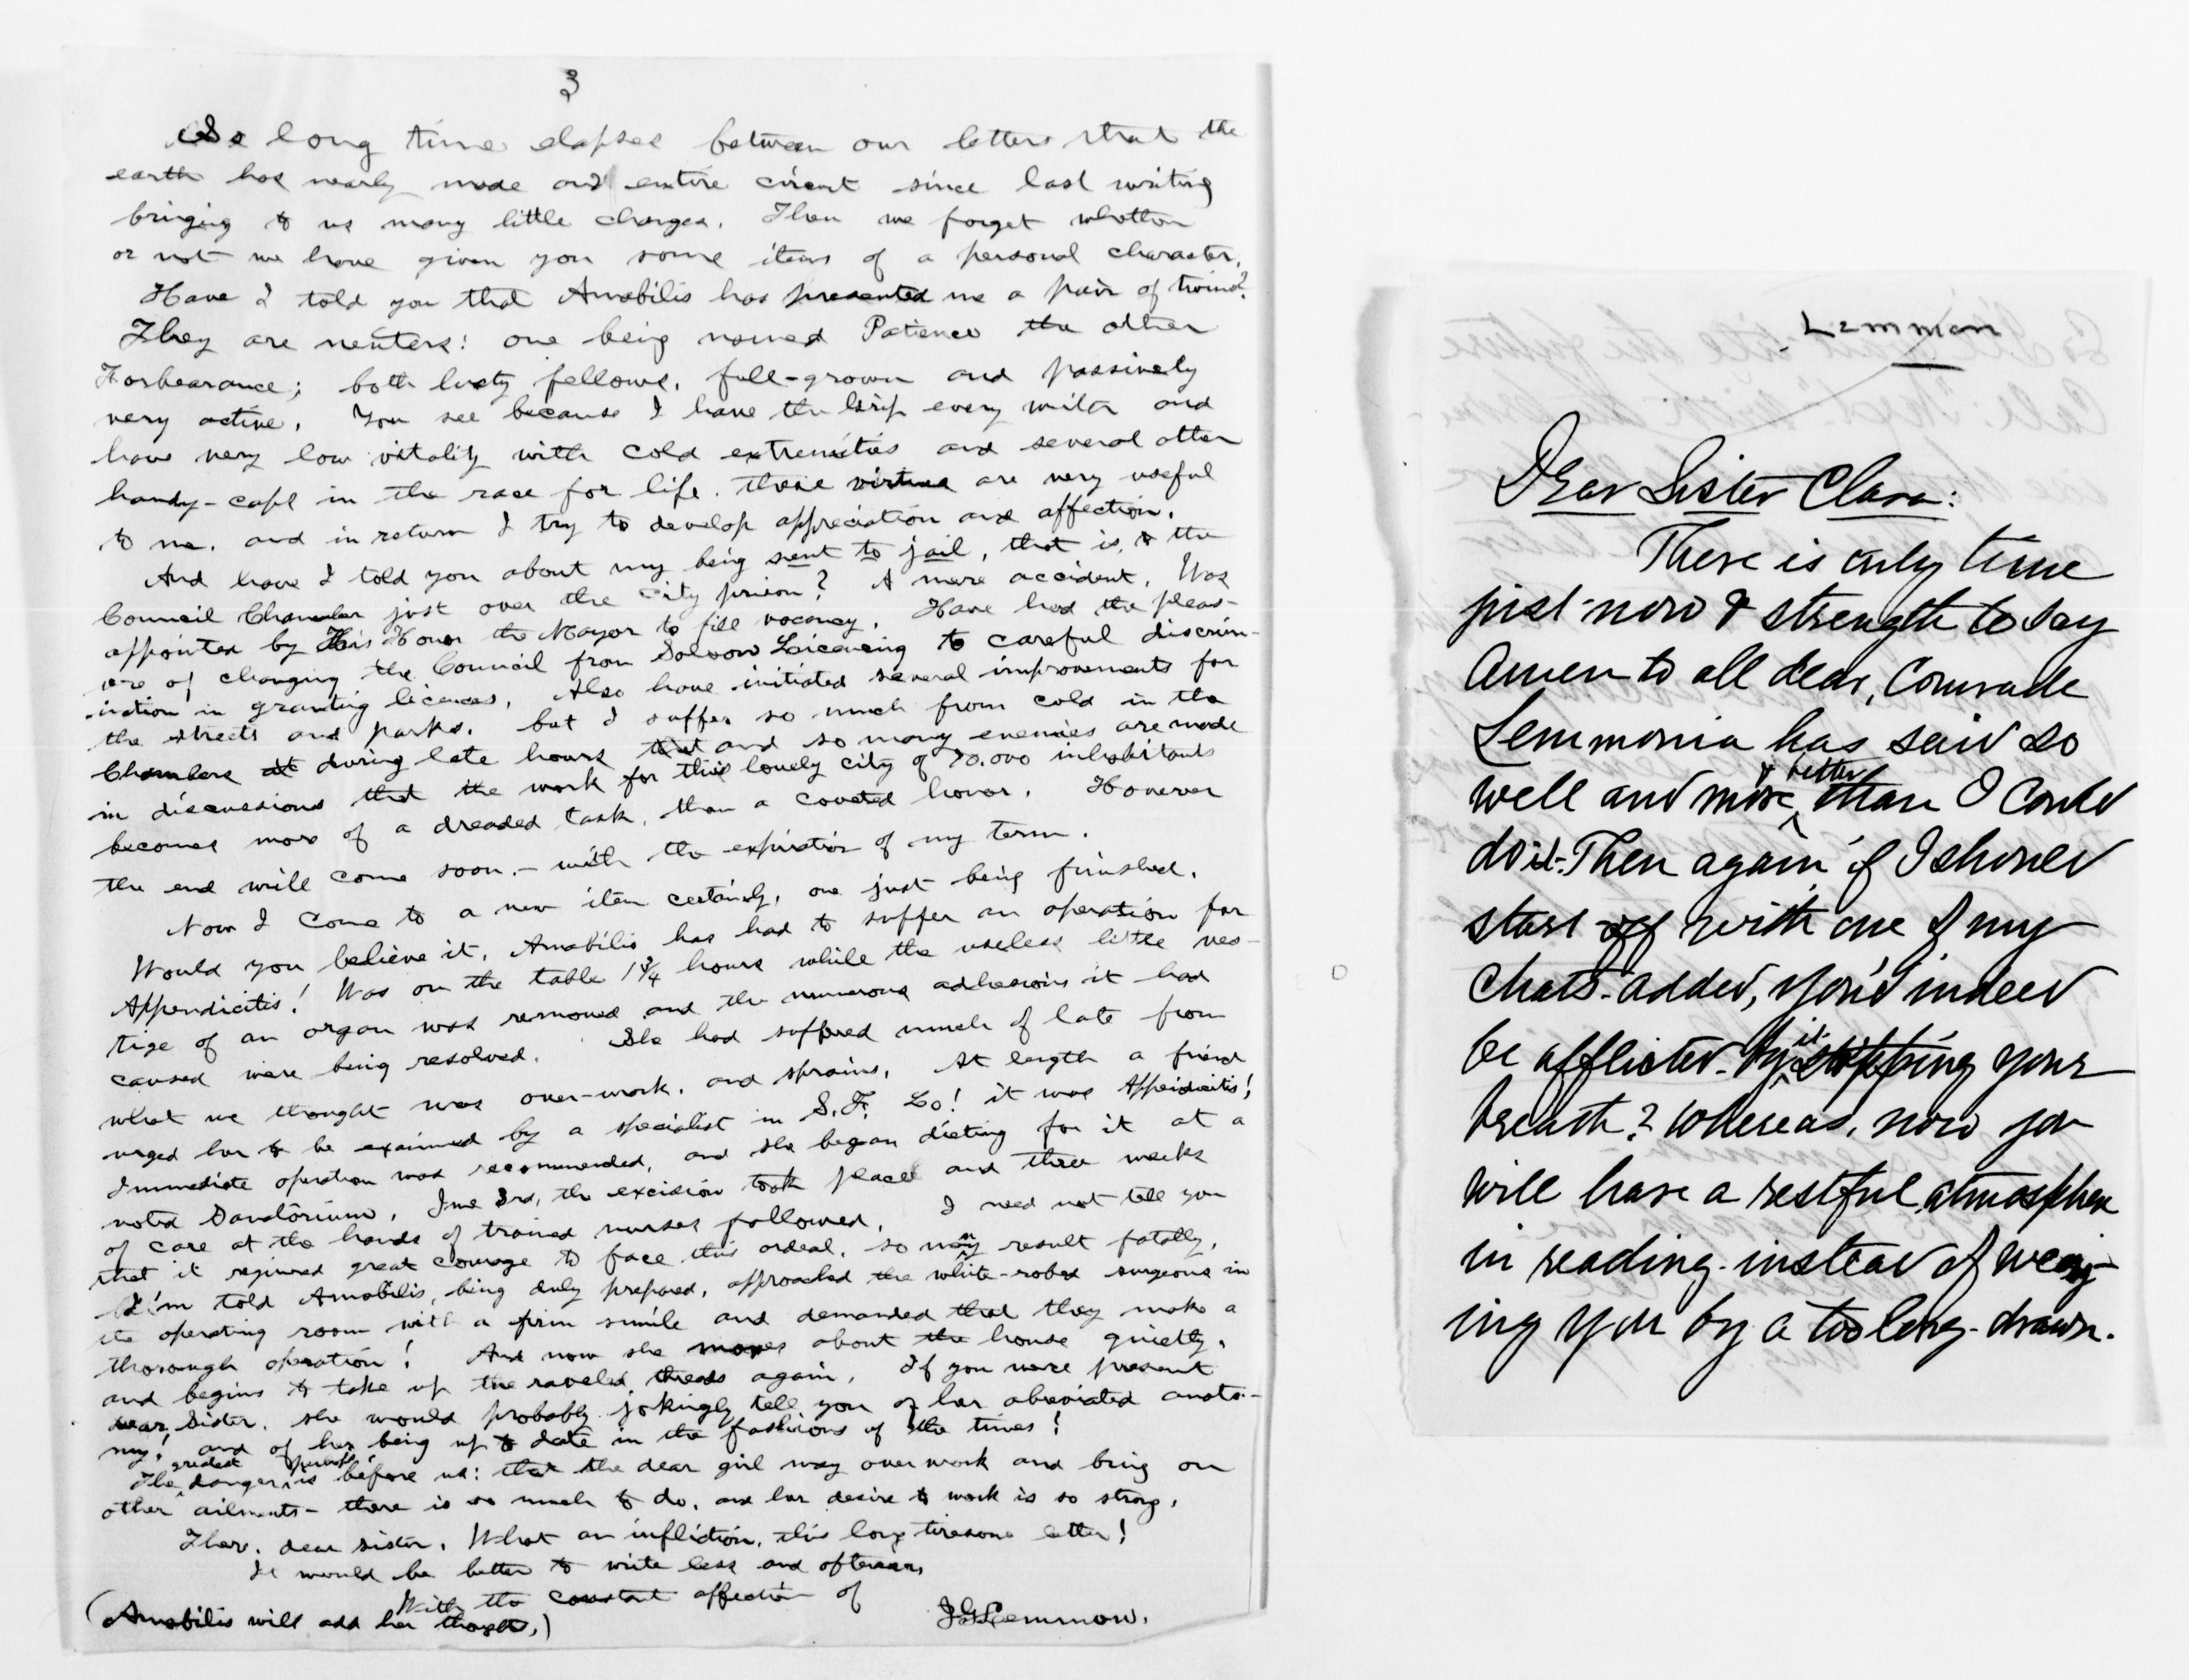 3
So long time elapses between our letters that the
earth has nearly made and entire circuit since last writing
bringing to us many little changes. Then we forget whether
or not we have given you some items of a personal character.
Have I told you that Amabilis has presented me a pair of twins?
They are neuters: one being named Patience the other
Forbearance; both lusty fellows, full-grown and passively
very active. You see because I have the Grip every winter and
have very low vitality with cold extremities and several other
handy-caps in the race for life, these virtues are very useful
to me, and in return I try to develop appreciation and affection.
And have I told you about my being sent to jail, that is, to the
Council Chamber just over the city prison? A mere accident. Was
appointed by His Honor the Mayor to fill vacancy. Have had the pleas-
ure of changing the Council from Saloon Licencing to careful discrim-
ination in granting licences. Also have initiated several improvements for
the streets and parks. but I suffer so much from cold in the
Chambers at during late hours that and so many enemies are made
in discussions that the work for this lovely city of 70.000 inhabitants
becomes more of a dreaded task, than a coveted honor. However
the end will come soon, - with the expiration of my term.
Now I come to a new item certainly, one just being finished.
Would you believe it, Amabilis has had to suffer an operation for
Appendicitis! Was on the table 1 3/4 hours while the useless little ves-
tige of an organ was removed and the numerous adhesions it had
caused were being resolved. She had suffered much of late from
what we thought was over-work, and sprains. At length a friend
urged her to be examined by a specialist in S.F. Lo! it was Appendicitis!
Immediate operation was recommended, and she began dieting for it at a
noted Sanatorium. June 3rd, the excision took place and three weeks
of care at the hands of trained nurses followed. I need not tell you
that it required great courage to face this ordeal, so many result fatally.
I'm told Amabilis, being duly prepared, approached the white-robed surgeons in
the operating room with a firm smile and demanded that they make a
thorough operation! And now she moves about the house quietly,
and begins to take up the raveled threads again. If you were present
dear Sister, she would probably jokingly tell you of her abreviated anato-
my! and of her being up to date in the fashions of the times!
The greatest danger, perhaps, is before us: that the dear girl may overwork and bring on
other ailments - there is so much to do, and her desire to work is so strong.
There, dear sister, What an infliction, this long tiresome letter!
It would be better to write less and oftener,
With the constant affection of
(Amabilis will add her thoughts.) J.G. Lemmon.
Lemmon
Dear Sister Clara:
There is only time
just now & strength to say
Amen to all dear, Comrade
Lemmonia has said so
well and more & better than I could
do it. Then again if I should
start off with one of my
chats added, you'd indeed
be afflicted by it stopping your
breath? whereas, now you
will have a restful atmosphere
in reading instead of weary-
ing you by a too long-drawn.